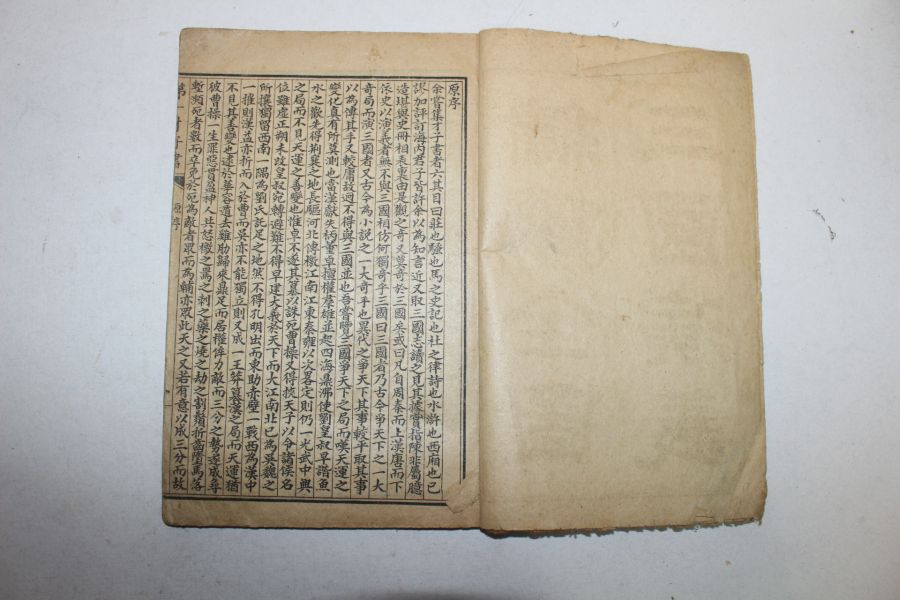 原序
余嘗集才子書者六其目曰莊也騷也馬之史記也杜之律詩也水滸也西廂也已
謬加評訂海内君子皆許余以為知言近又取三國志讀之見其據實指陳非屬臆
造堪與史冊相表裏由是觀之奇又莫奇於三國矣或曰凡自周秦而上漢唐而下
依史以演義者無不與三國相仿何獨奇乎三國曰三國者乃古今爭天下之一大
奇局而演三國者又古今為小說之一大奇手也異代之爭天下其事較平取其事
以為傳其手又較庸故迥不得與三國並也吾嘗覽三國爭天下之局而嘆天運之
變化真有所莫測也當漢獻失柄董卓擅權羣雄並起四海鼎沸使劉皇叔早諧魚
水之歡先得荊襄之地長驅河北傳檄江南江東秦雍以次畧定則仍一光武中興
之局而不見天運之善變也惟卓不遂其篡以誅死曹操又得挾天子以令諸侯名
位雖虛正朔未改皇叔宛轉避難不得早建大義於天下而大江南北已為吳魏之
所攫獨留西南一隅為劉氏託足之地然不得孔明出而東助赤壁一戰西為漢中
一摧則漢益亦折而入於曹而吳亦不能獨立則又成一王莽篡漢之局而天運猶
不見其善變也逮於華容遁去雞肋歸來鼎足而居權侔力敵而三分之勢遂成尋
彼曹操一生罪惡貫盈神人共怒檄之罵之刺之藥之燒之劫之割鬚折齒墮馬落
塹瀕死者數而卒免於死為敵者眾而為輔亦眾此天之又若有意以成三分而故
第一才子書 原序